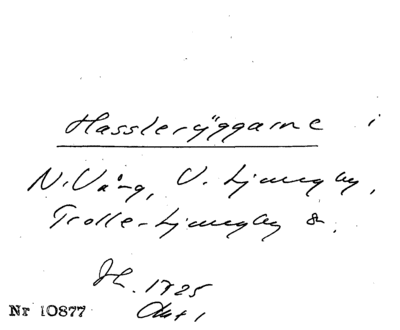 Hassleryggarne i
N. Vång, V. Ljungby,
Trolle-Ljungby &.
1725
Akt 1
Nr 10877